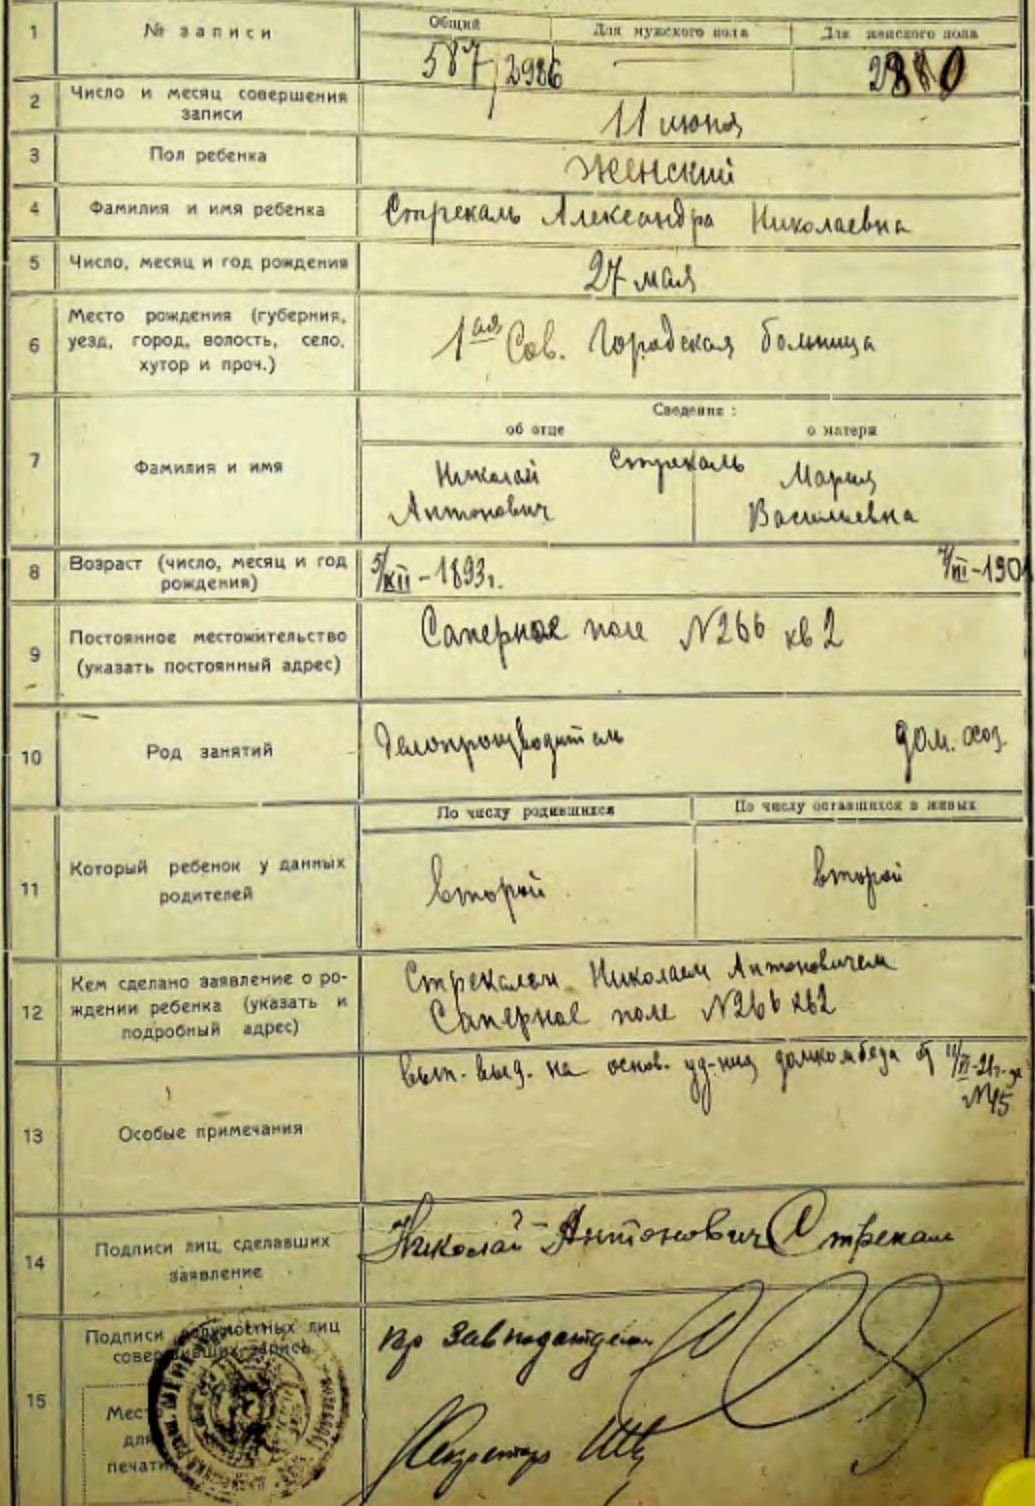 1 № записи Общий Для мужского пола Для женского пола
587/2986 — 2880
2 Число и месяц совершения
записи
11 июня
3 Пол ребенка Женский
4 Фамилия и имя ребенка Стрекаль Александра Николаевна
5 Число, месяц и год рождения 27 мая
6 Место рождения (губерния,
уезд, город, волость, село,
хутор и проч.)
1ая Сов. Городская больница
Сведения:
об отце о матери
7 Фамилия и имя
Стрекаль
Николай Мария
Антонович Васильевна
8 Возраст (число, месяц и год
рождения)
5/XII-1893г. /III-190
9 Постоянное местожительство
(указать постоянный адрес)
Саперное поле N266 кв 2
10 Род занятий Делопроизводитель дом. хоз.
По числу родившихся По числу оставшихся в живых
11 Который ребенок у данных
родителей
второй второй
12 Кем сделано заявление о ро-
ждении ребенка (указать и
подробный адрес)
Стрекалем Николаем Антоновичем
Саперное поле N266 кв2
13 Особые примечания
вып. выд. на основ. уд-ния домкомбеда
N45
14 Подписи лиц, сделавших
заявление
Николай Антонович Стрекаль
15 Подписи должностных лиц
совершивших запись
Мес
для
печати
Завподотделом
Секретарь